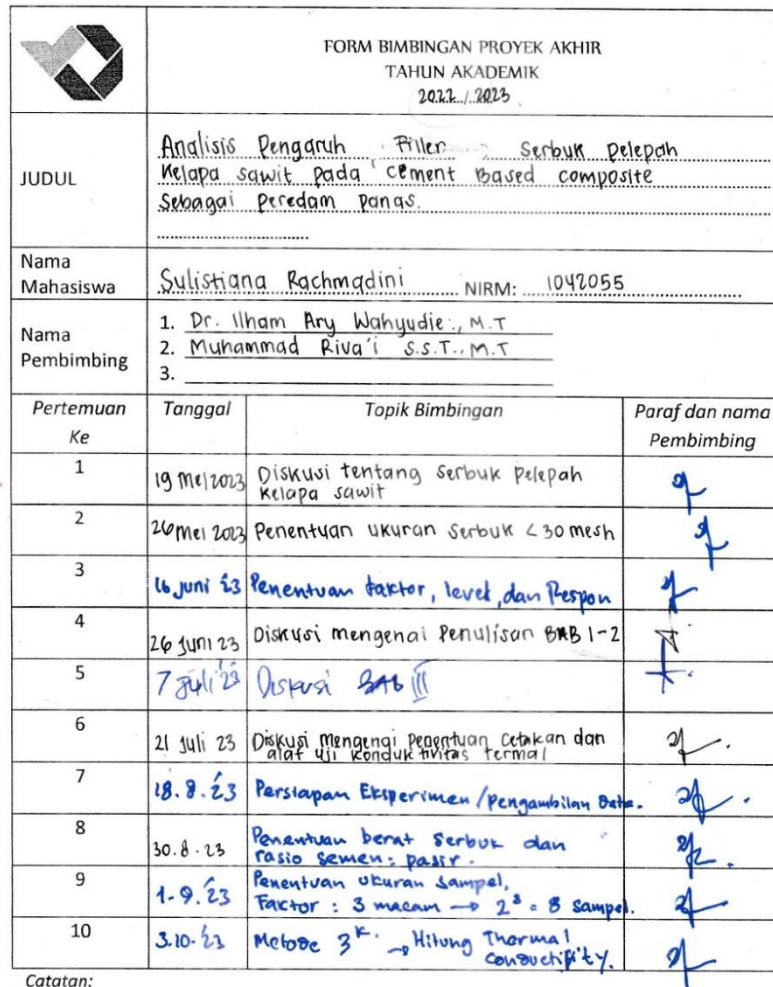 FORM BIMBINGAN PROYEK AKHIR
TAHUN AKADEMIK
2022 / 2023
JUDUL
Analisis Pengaruh Filler Serbuk Pelepah
Kelapa sawit pada cement Based composite
Sebagai peredam panas.
Nama Mahasiswa
Sulistiana Rachmadini NIRM: 1042055
Nama Pembimbing
1. Dr. Ilham Ary Wahyudie, M.T
2. Muhammad Riva'i S.S.T., M.T
3.
Pertemuan Ke Tanggal Topik Bimbingan Paraf dan nama Pembimbing
1 19 Mei 2023 Diskusi tentang Serbuk Pelepah
Kelapa sawit
2 26 Mei 2023 Penentuan ukuran Serbuk < 30 mesh
3 16 Juni '23 Penentuan faktor, level, dan Respon
4 26 Juni 23 Diskusi mengenai Penulisan BAB 1-2
5 7 Juli '23 Diskusi BAB III
6 21 Juli 23 Diskusi Mengenai Penentuan Cetakan dan
alat uji Konduktivitas termal
7 18.8.'23 Persiapan Eksperimen/pengambilan Data.
8 30.8.23 Penentuan berat Serbuk dan
rasio semen : pasir.
9 1.9.'23 Penentuan ukuran Sampel,
Faktor : 3 macam → 2³ = 8 sampel.
10 3.10.'23 Metode 3ᴷ. → Hitung Thermal
Conductifity.
Catatan: